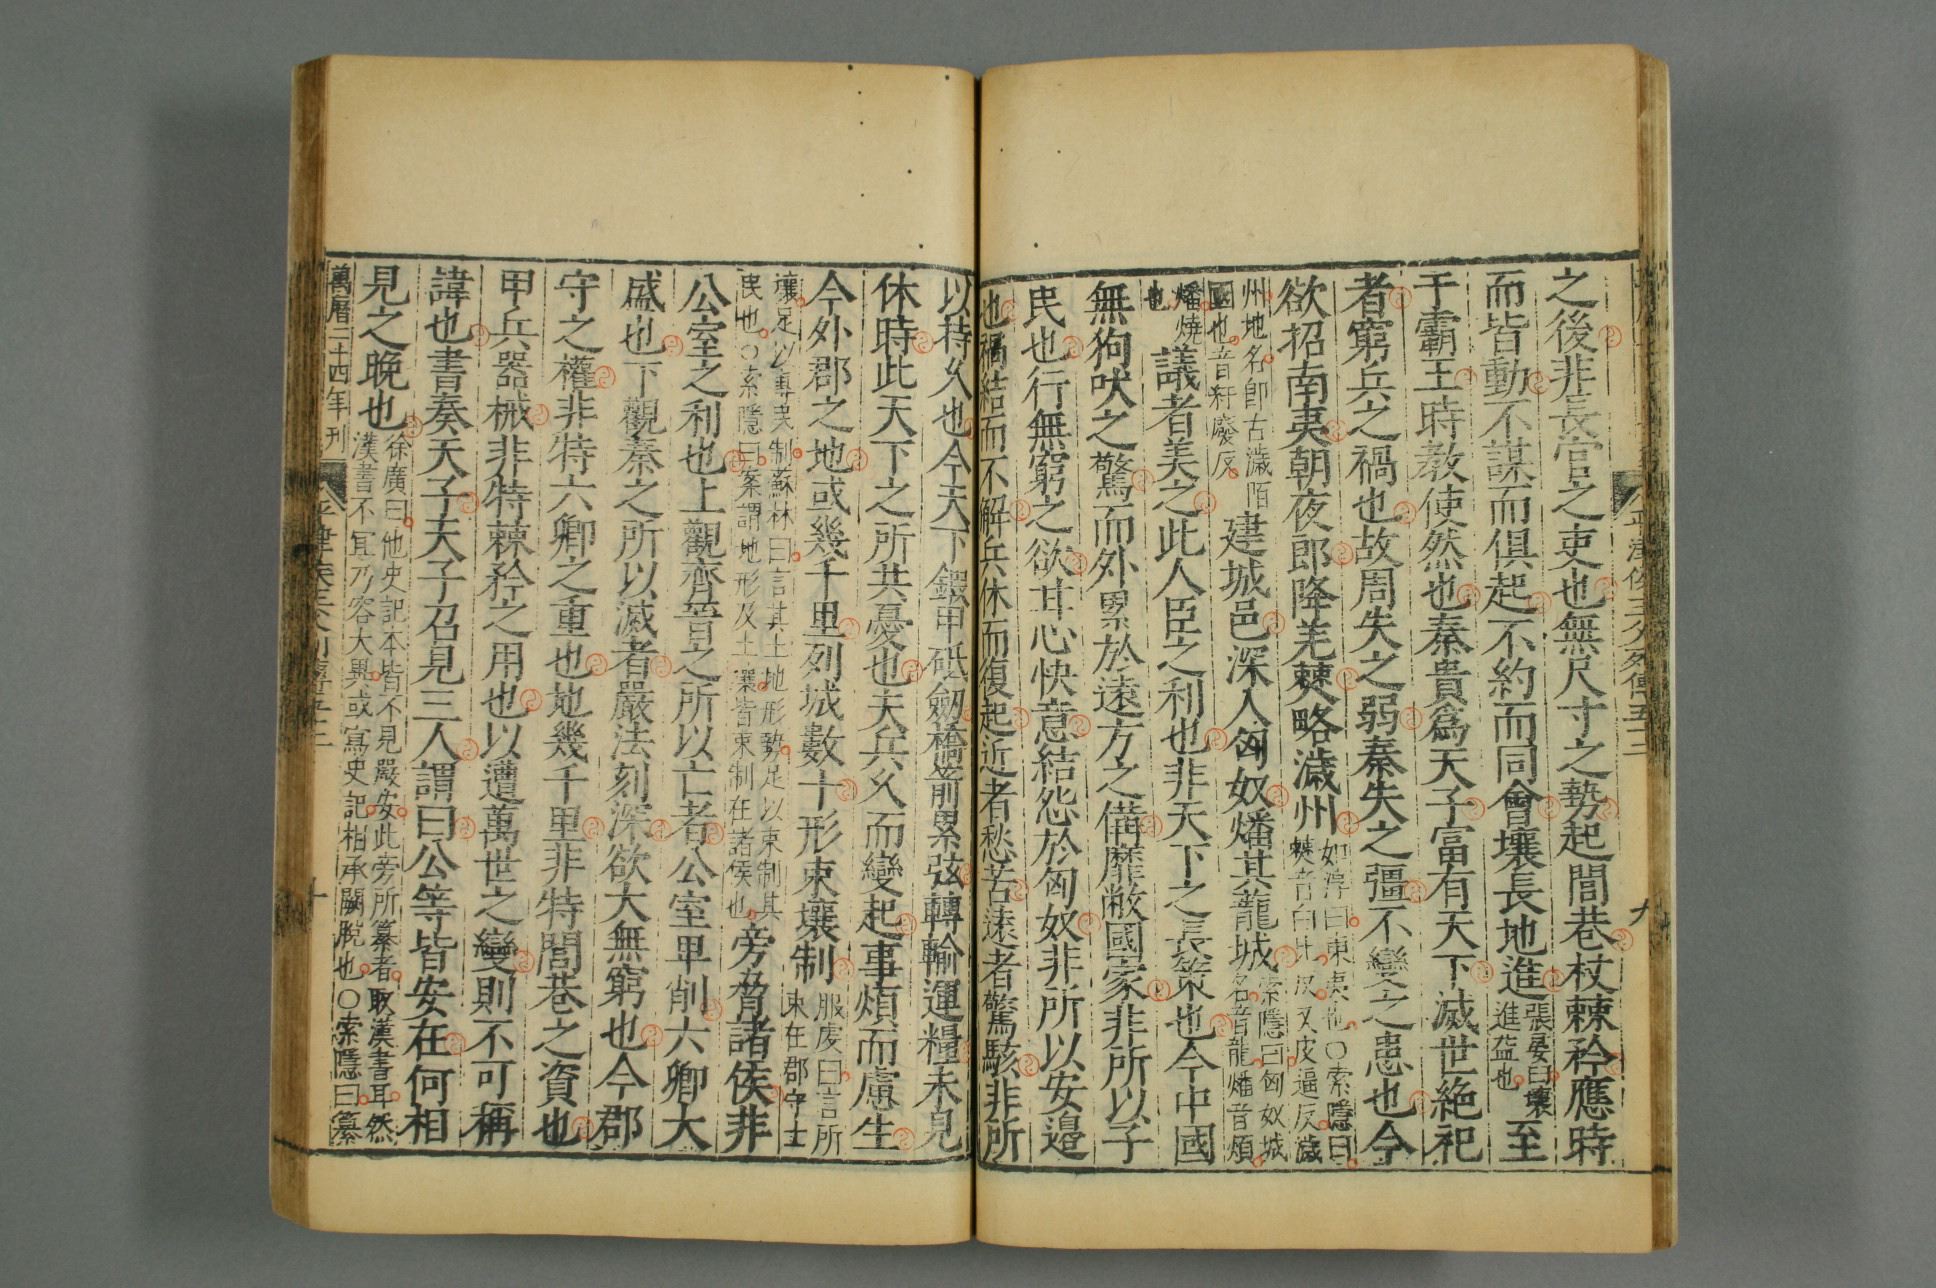 公孫弘主父列傳五十二
九
之後非長官之吏也無尺寸之勢起閭巷杖棘矜應時
而皆動不謀而俱起不約而同會壤長地進張晏曰壤進益也至
于霸王時教使然也秦貴爲天子富有天下滅世絶祀
者窮兵之禍也故周失之弱秦失之彊不變之患也今
欲招南夷朝夜郎降羌僰略濊州如淳曰東夷也○索隱曰僰音白北反又皮逼反濊
州地名卽古濊陌國也音紆廢反建城邑深入匈奴燔其蘢城索隱曰匈奴城名音龍燔音煩
燔燒也議者美之此人臣之利也非天下之長策也今中國
無狗吠之驚而外累於遠方之備靡敝國家非所以子
民也行無窮之欲甘心快意結怨於匈奴非所以安邊
也禍結而不解兵休而復起近者愁苦遠者驚駭非所
以持久也今天下鍛甲砥劒橋箭累弦轉輸運糧未見
休時此天下之所共憂也夫兵久而變起事煩而慮生
今外郡之地或幾千里列城數十形束壤制服虔曰言所束在郡守土
壤足以專民制蘇林曰言其土地形勢足以束制其民也○索隱曰案謂地形及土壤皆束制在諸侯也旁脅諸侯非
公室之利也上觀齊晉之所以亡者公室卑削六卿大
盛也下觀秦之所以滅者嚴法刻深欲大無窮也今郡
守之權非特六卿之重也地幾千里非特閭巷之資也
甲兵器械非特棘矜之用也以遭萬世之變則不可稱
諱也書奏天子天子召見三人謂曰公等皆安在何相
見之晚也徐廣曰他史記本皆不見嚴安此旁所纂者取漢書耳然漢書不冝乃容大異或寫史記相承闕脫也○索隱曰纂
萬曆二十四年刊
平津侯主父列傳五十二
十